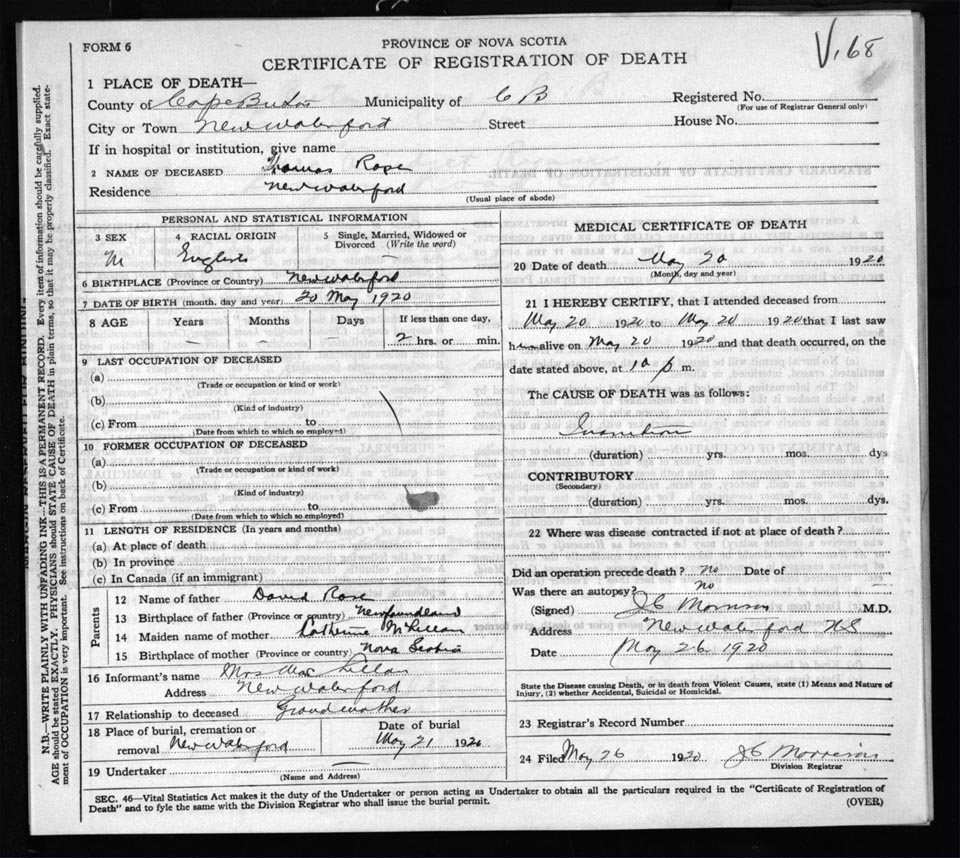 V, 68
FORM 6
PROVINCE OF NOVA SCOTIA
CERTIFICATE OF REGISTRATION OF DEATH
1 PLACE OF DEATH—
County of Cape Breton Municipality of C B Registered No.
(For use of Registrar General only)
City or Town New Waterford Street House No.
If in hospital or institution, give name
2 NAME OF DECEASED Thomas Rose
Residence New Waterford
(Usual place of abode)
PERSONAL AND STATISTICAL INFORMATION
3 SEX 4 RACIAL ORIGIN 5 Single, Married, Widowed or Divorced (Write the word)
M English —
6 BIRTHPLACE (Province or Country) New Waterford
7 DATE OF BIRTH (month, day and year) 20 May 1920
8 AGE Years Months Days If less than one day,
— — — 2 hrs. or min.
9 LAST OCCUPATION OF DECEASED
(a)
(Trade or occupation or kind or work)
(b)
(Kind of industry)
(c) From to
(Date from which to which so employed)
10 FORMER OCCUPATION OF DECEASED
(a)
(Trade or occupation or kind of work)
(b)
(Kind of industry)
(c) From to
(Date from which to which so employed)
11 LENGTH OF RESIDENCE (In years and months)
(a) At place of death
(b) In province
(c) In Canada (if an immigrant)
Parents
12 Name of father David Rose
13 Birthplace of father (Province or country) Newfoundland
14 Maiden name of mother Catherine McLellan
15 Birthplace of mother (Province or country) Nova Scotia
16 Informant's name Mrs Mac Lellan
Address New Waterford
17 Relationship to deceased Grandmother
18 Place of burial, cremation or removal New Waterford
Date of burial
May 21 1920
19 Undertaker
(Name and Address)
MEDICAL CERTIFICATE OF DEATH
20 Date of death May 20 1920
(Month, day and year)
21 I HEREBY CERTIFY, that I attended deceased from
May 20 1920 to May 20 1920 that I last saw
h alive on May 20 1920 and that death occurred, on the
date stated above, at 10 p m.
The CAUSE OF DEATH was as follows:
(duration) yrs. mos. dys
CONTRIBUTORY
(Secondary)
(duration) yrs. mos. dys.
22 Where was disease contracted if not at place of death?
Did an operation precede death? no Date of
Was there an autopsy? no
(Signed) J C Morrison M.D.
Address New Waterford NS
Date May 26 1920
State the Disease causing Death, or in death from Violent Causes, state (1) Means and Nature of
Injury, (2) whether Accidental, Suicidal or Homicidal.
23 Registrar's Record Number
24 Filed May 26 1920 J C Morrison
Division Registrar
SEC. 46—Vital Statistics Act makes it the duty of the Undertaker or person acting as Undertaker to obtain all the particulars required in the "Certificate of Registration of
Death" and to fyle the same with the Division Registrar who shall issue the burial permit. (OVER)
N.B.—WRITE PLAINLY WITH UNFADING INK—THIS IS A PERMANENT RECORD. Every item of information should be carefully supplied.
AGE should be stated EXACTLY. PHYSICIANS should STATE CAUSE OF DEATH in plain terms, so that it may be properly classified. Exact state-
ment of OCCUPATION is very important. See instructions on back of Certificate.